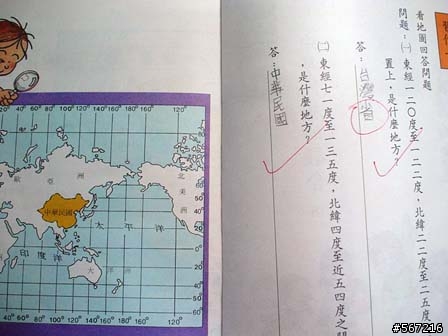 看地圖回答問題
問題：㈠東經一二○度至一二二度，北緯二二度至二五度
置上，是什麼地方？
答：台灣省
㈡東經七一度至一三五度，北緯四度至近五四度之
，是什麼地方？
答：中華民國
20° 40° 60° 80° 100° 120° 140° 160° 180° 160° 120°
歐 亞 洲
北美洲
中華民國
太 平 洋
印 度 洋
大 洋 洲
20° 40° 60° 80° 100° 120° 140° 160° 180° 160° 120°
#567216